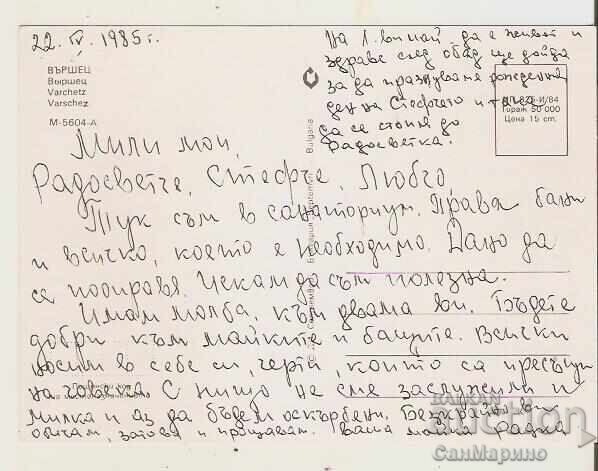 22. IV. 1985 г.
ВЪРШЕЦ
Вършец
Varchetz
Varschez
М-5604-А
На 1.ви май, да е живот и
здраве след обяд ще дойда
за да празнуваме рождения
ден на Стефчето и
да се стопя до
Радосветка.
И/84
Тираж 50 000
Цена 15 cm.
Мили мои,
Радосветче, Стефче, Любчо,
Тук съм в санаториум. Правя бани
и всичко, което е необходимо. Дано да
се поправя. Искам да съм полезна.
Имам молба, към двама ви. Бъдете
добри към майките и бащите. Всички
носим в себе си, черти, които са присъщи
на човека. С нищо не сме заслужили и
Милка и аз да бъдем оскърбени. Безкрайно ви
обичам, затова и прощавам. Ваша майка Радка
Bulgaria
auction
СанМарино